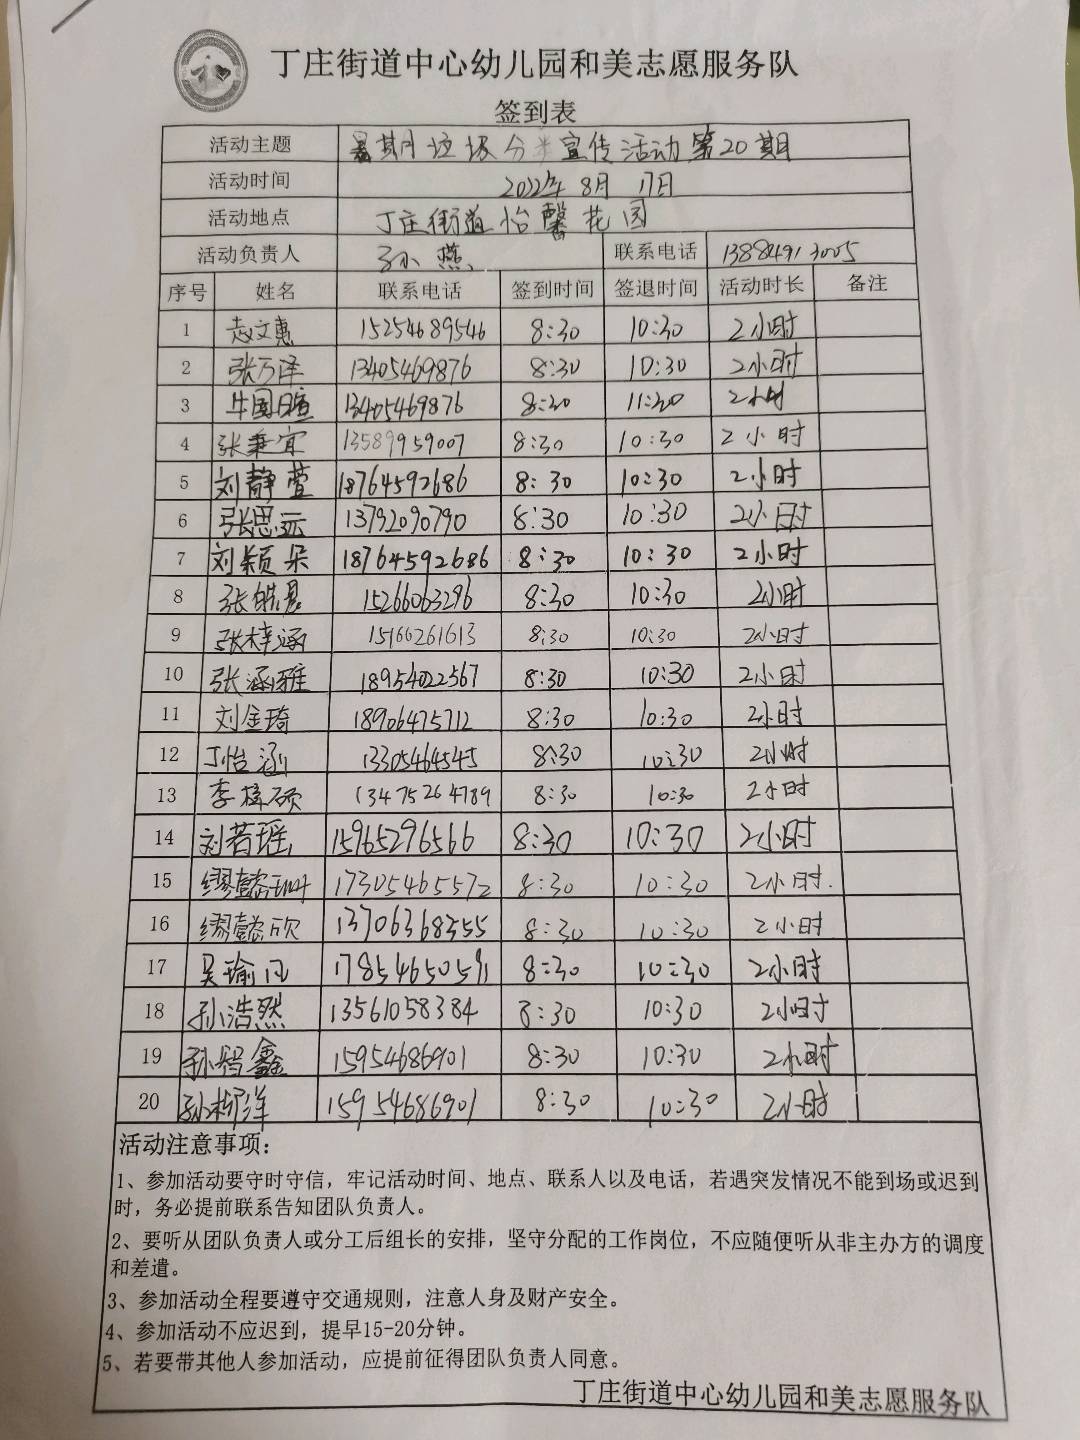 丁庄街道中心幼儿园和美志愿服务队
签到表
活动主题 暑期垃圾分类宣传活动第20期
活动时间 2022年8月17日
活动地点 丁庄街道怡馨花园
活动负责人 孙燕 联系电话 13884913005
序号 姓名 联系电话 签到时间 签退时间 活动时长 备注
1 赵文惠 15254689546 8:30 10:30 2小时
2 张万泽 13405469876 8:30 10:30 2小时
3 牛国暄 13405469876 8:30 11:30 2小时
4 张秉宜 13589959007 8:30 10:30 2小时
5 刘静萱 18764592686 8:30 10:30 2小时
6 张思远 13792090790 8:30 10:30 2小时
7 刘颖朵 18764592686 8:30 10:30 2小时
8 张皓晨 15266063296 8:30 10:30 2小时
9 张梓涵 15166261613 8:30 10:30 2小时
10 张涵雅 18954022567 8:30 10:30 2小时
11 刘金琦 18906475712 8:30 10:30 2小时
12 丁怡涵 13305464545 8:30 10:30 2小时
13 李梓硕 13475264789 8:30 10:30 2小时
14 刘若瑶 15965296566 8:30 10:30 2小时
15 缪懿 17305465572 8:30 10:30 2小时.
16 缪懿欣 13706368355 8:30 10:30 2小时
17 吴瑜 17854650591 8:30 10:30 2小时
18 孙浩然 13561058384 8:30 10:30 2小时
19 孙智鑫 15954686901 8:30 10:30 2小时
20 孙柳洋 15954686901 8:30 10:30 2小时
活动注意事项:
1、参加活动要守时守信，牢记活动时间、地点、联系人以及电话，若遇突发情况不能到场或迟到
时，务必提前联系告知团队负责人。
2、要听从团队负责人或分工后组长的安排，坚守分配的工作岗位，不应随便听从非主办方的调度
和差遣。
3、参加活动全程要遵守交通规则，注意人身及财产安全。
4、参加活动不应迟到，提早15-20分钟。
5、若要带其他人参加活动，应提前征得团队负责人同意。
丁庄街道中心幼儿园和美志愿服务队